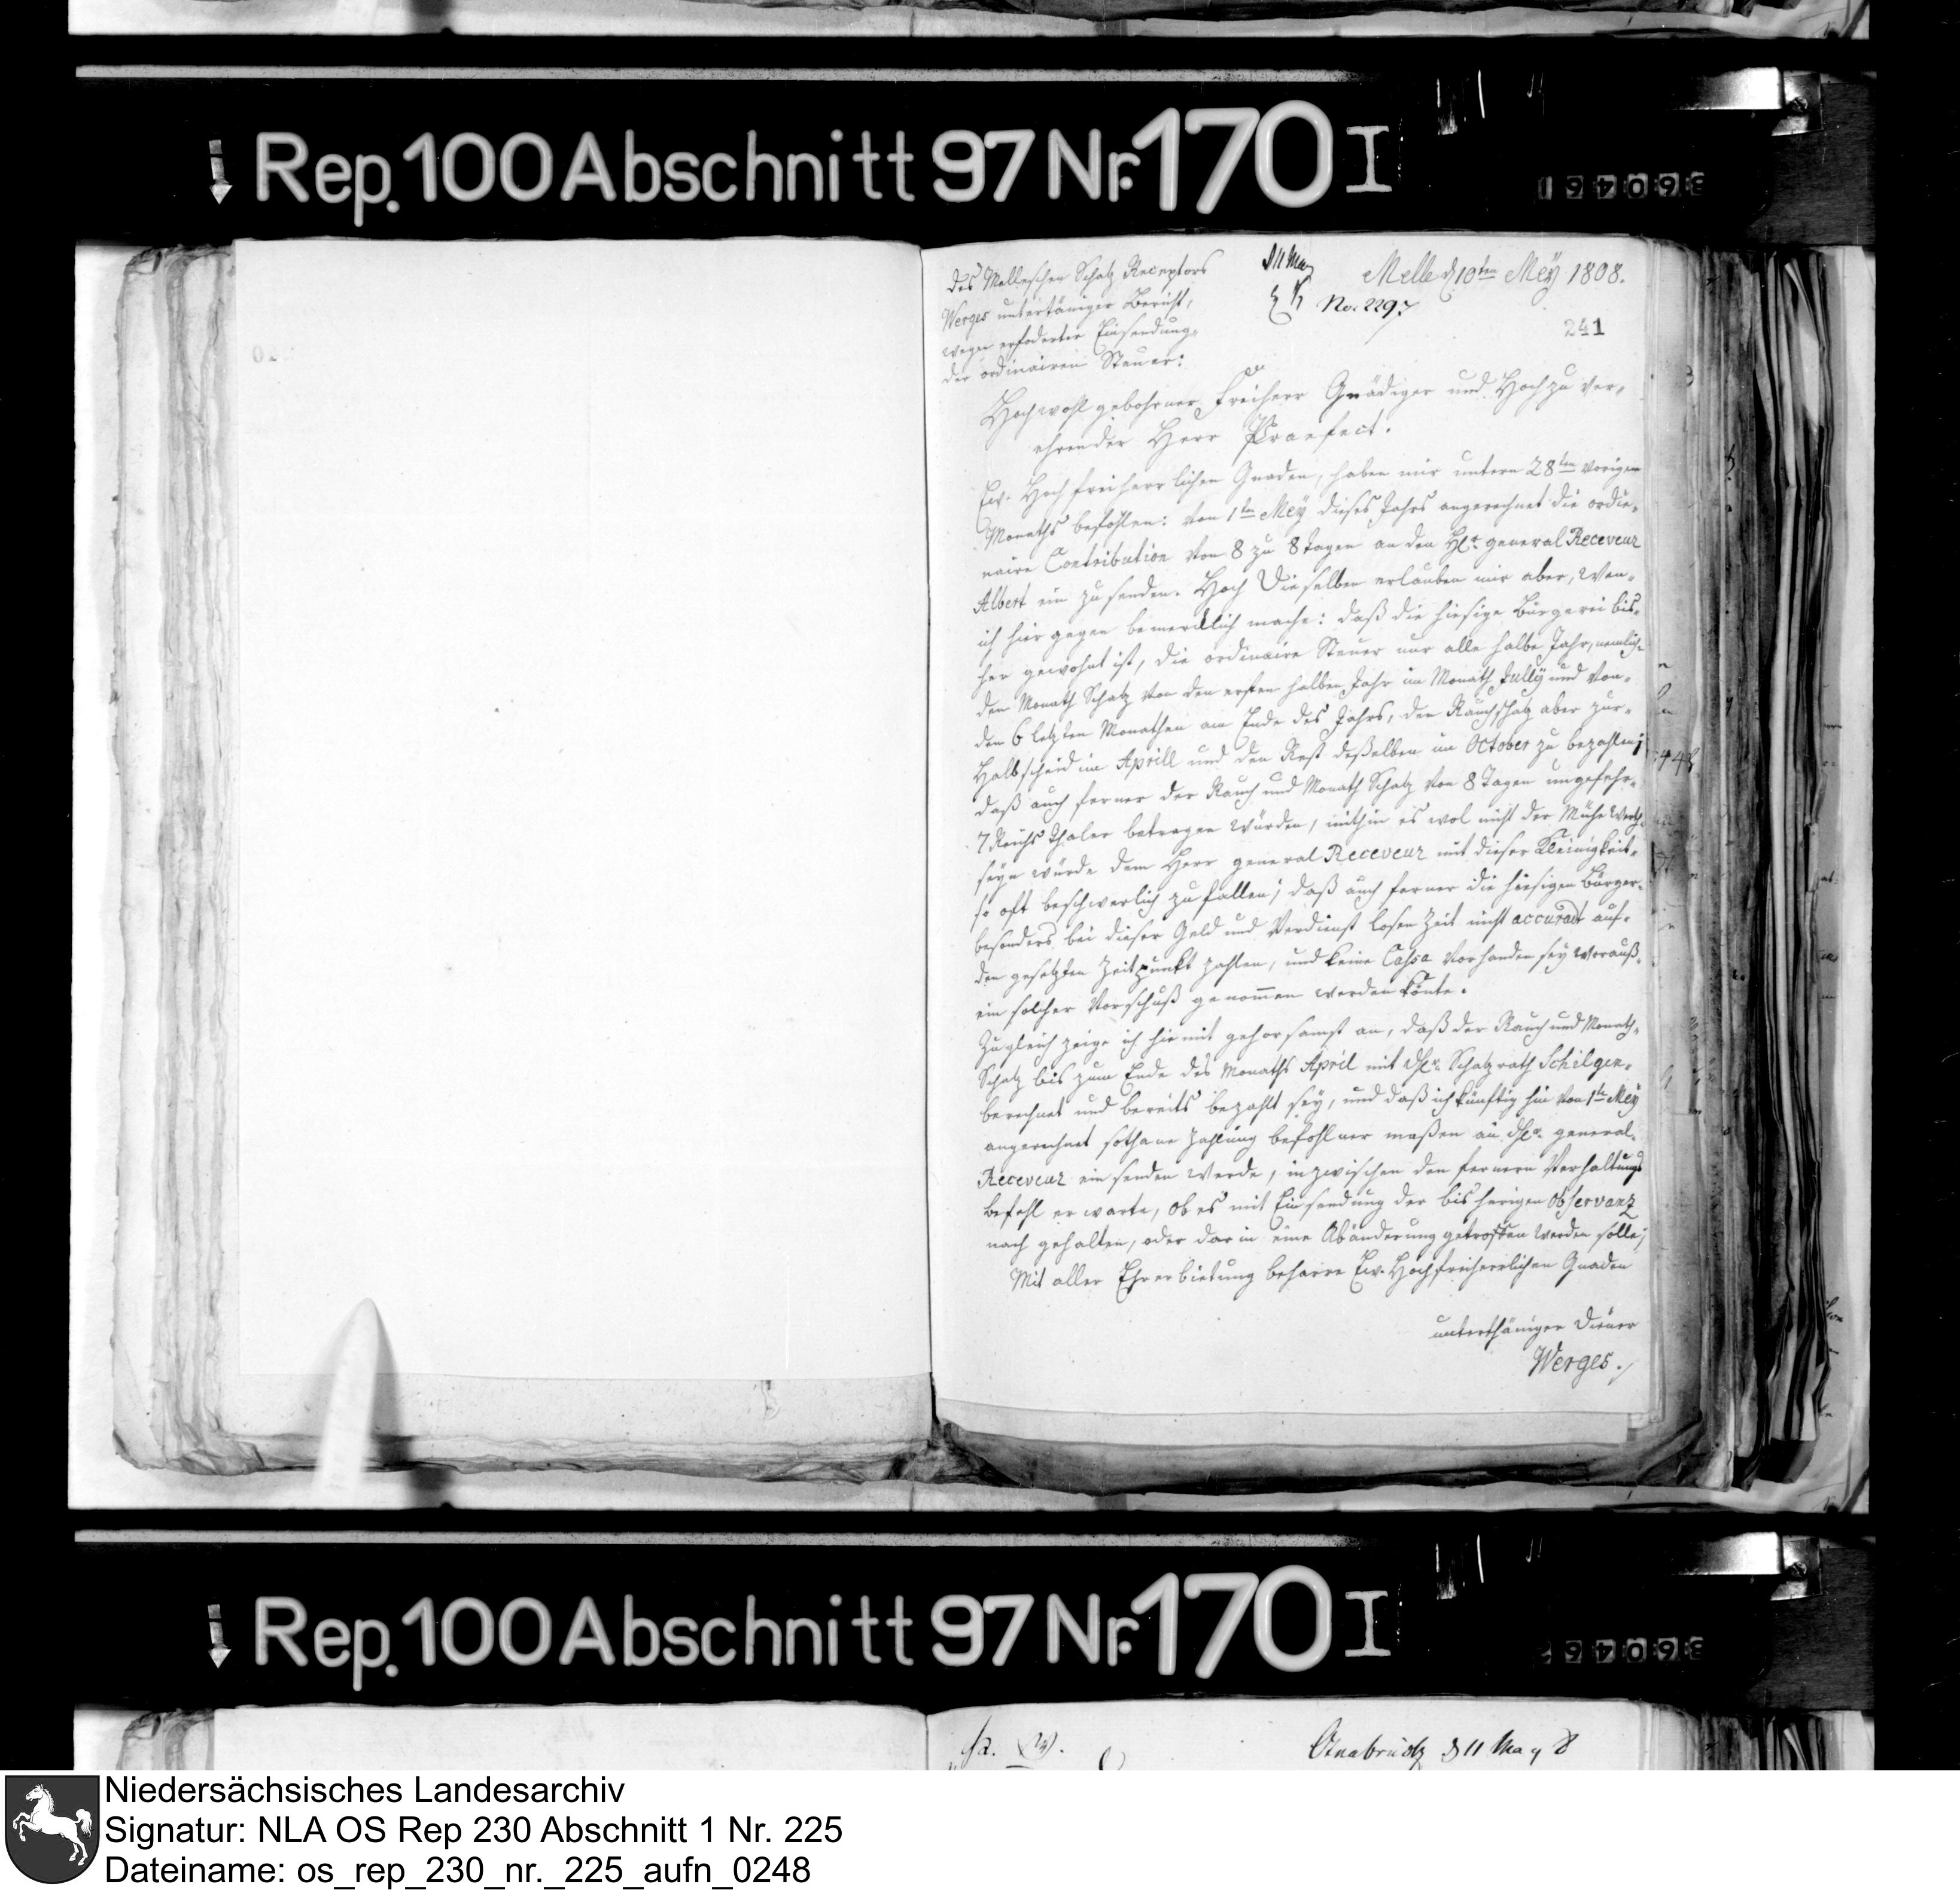 Rep. 100 Abschnitt 97 Nr. 170 I
360461
des Melleschen Schatz Receptors
Werges untertäniger Bericht,
wegen erfoderter Einsendung
der ordinairen Steuer:
d 11 May
No. 2297
Melle d 10ten Mey 1808.
241
Hochwohlgebohrner Freiherr Gnädiger und Hochzu ver-
ehrender Herr Praefect.
Ew. Hochfreiherrlichen Gnaden, haben mir untern 28ten vorigen
Monaths befohlen: von 1ten Mey dieses Jahrs angerechnet die ordi-
naire Contribution von 8 zu 8 Tagen an den H. general Receveur
Albert ein zu senden. Hoch Dieselben erlauben mir aber, wen-
ich hier gegen bemerklich mache: daß die hiesige Bürgerei bis-
her gewohnt ist, die ordinaire Steuer nur alle halbe Jahr, nemlich-
den Monath Schatz von den ersten halben Jahr im Monath Jully und von-
den 6 letzten Monathen am Ende des Jahrs, den Rauchschatz aber zur-
Halbscheid im Aprill und den Rest deßelben im October zu bezahlen;
daß auch ferner der Rauch und Monath Schatz von 8 Tagen ungefehr-
7 Reichs Thaler betragen würden, mithin es wol nicht der Mühe Werth-
seyn würde dem Herr general Receveur mit dieser Kleinigkeit-
so oft beschwerlich zu fallen; daß auch ferner die hiesigen Bürger-
besonders bei dieser Geld und Verdienst losen Zeit nicht accurat auf-
den gesetzten Zeitpunkt zahlen, und keine Cassa vorhanden sey worauß-
ein solcher Vorschuß genommen werden könte.
Zugleich zeige ich hiemit gehorsamst an, daß der Rauch und Monath-
Schatz bis zum Ende des Monaths April mit dH. Schatzrath Schilgen-
berechnet und bereits bezahlt sey, und daß ich künftig hin von 1ten Mey
angerechnet sothane Zahlung befohlner maßen an dH. general-
Receveur einsenden werde, inzwischen den fernern Verhaltungs
Befehl erwarte, ob es mit Einsendung der bisherigen Observanz
nach gehalten, oder darin eine Abänderung getroffen werden solle;
Mit aller Ehrerbietung beharre Ew. Hochfreiherrlichen Gnaden
unterthäniger Diener
Werges.
Rep. 100 Abschnitt 97 Nr. 170 I
Osnabrück d 11 May 8
Niedersächsisches Landesarchiv
Signatur: NLA OS Rep 230 Abschnitt 1 Nr. 225
Dateiname: os_rep_230_nr._225_aufn_0248